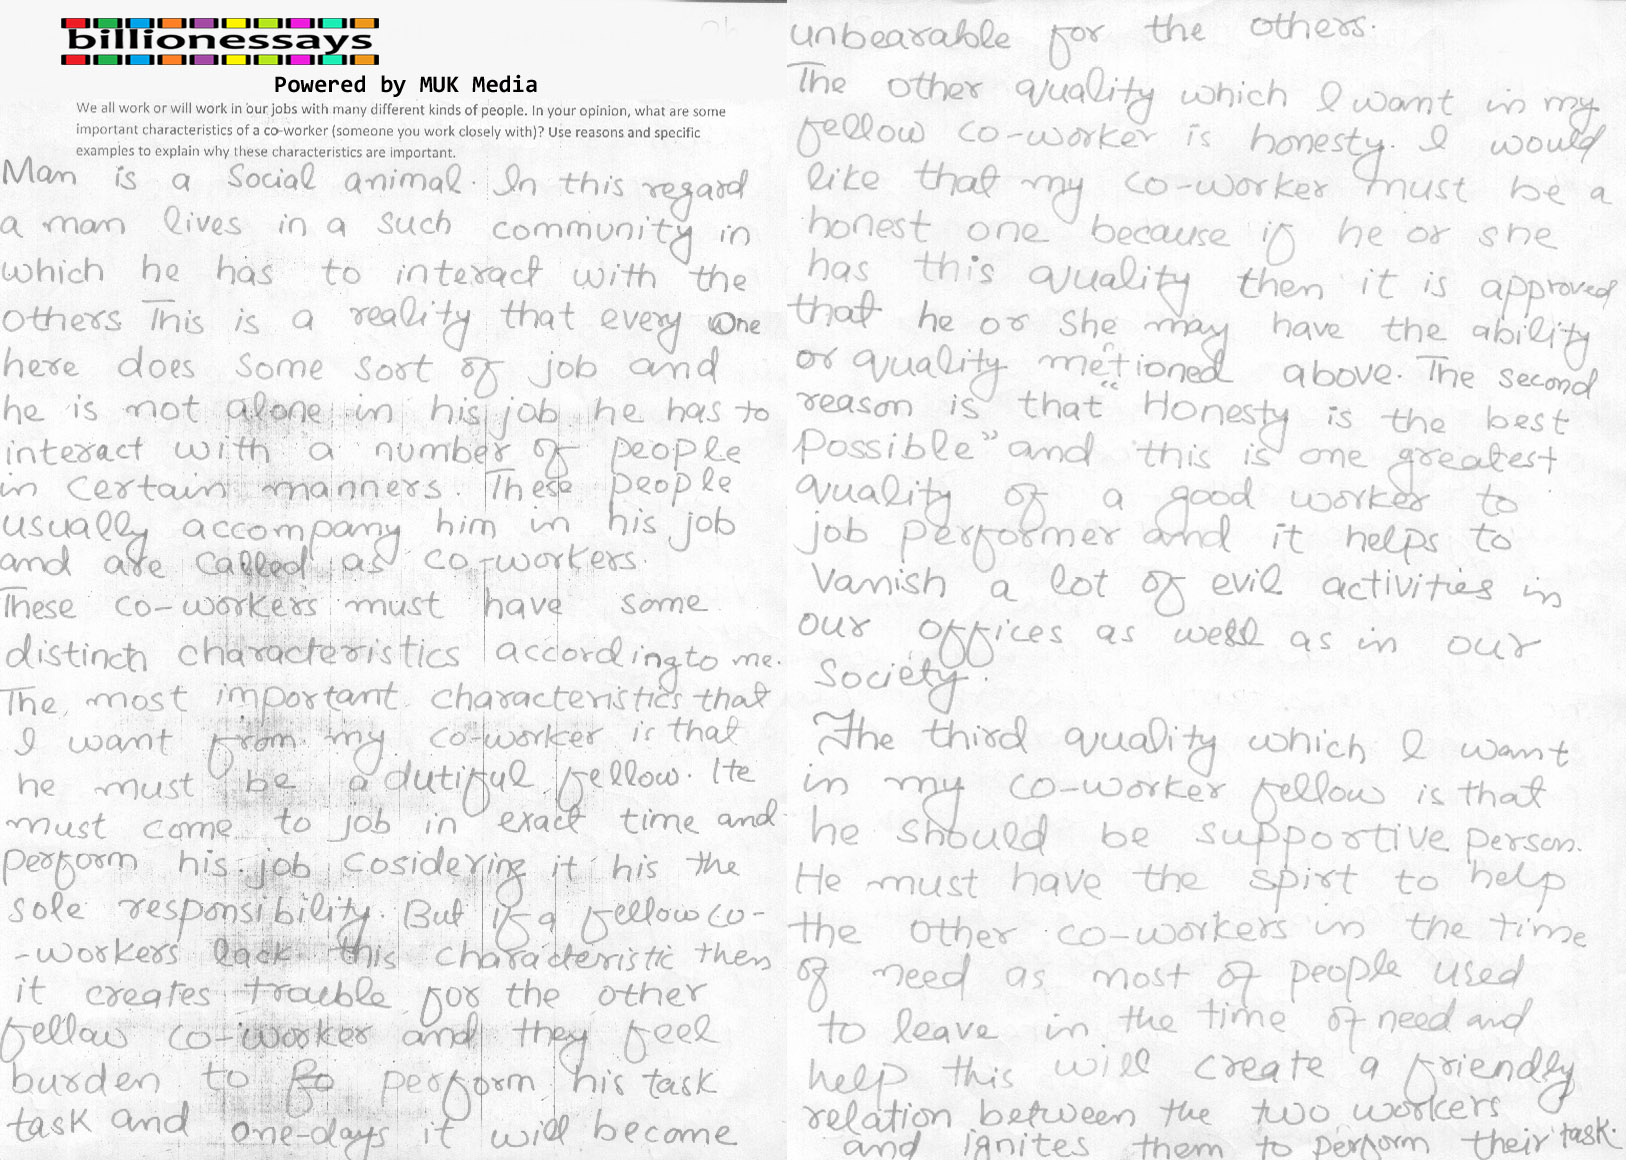 billionessays
Powered by MUK Media
We all work or will work in our jobs with many different kinds of people. In your opinion, what are some
important characteristics of a co-worker (someone you work closely with)? Use reasons and specific
examples to explain why these characteristics are important.
Man is a Social animal. In this regard
a man lives in a such community in
which he has to interact with the
others This is a reality that every one
here does some sort of job and
he is not alone in his job he has to
interact with a number of people
in certain manners. These people
usually accompany him in his job
and are called as co-workers.
These co-workers must have some
distinch characteristics according to me.
The most important characteristics that
I want from my co-worker is that
he must be a dutiful fellow. He
must come to job in exact time and
perform his job cosidering it his the
sole responsibility. But if a fellow co-
-workers lack this characteristic then
it creates trouble for the other
fellow co-worker and they feel
burden to perform his task
task and one-days it will become
unbearable for the others.
The other quality which I want in my
fellow co-worker is honesty. I would
like that my co-worker must be a
honest one because if he or she
has this quality then it is approved
that he or she may have the ability
or quality metioned above. The second
reason is that "Honesty is the best
Possible" and this is one greatest
quality of a good worker to
job performer and it helps to
vanish a lot of evil activities in
our offices as well as in our
Society.
The third quality which I want
in my co-worker fellow is that
he should be supportive person.
He must have the spirt to help
the other co-workers in the time
of need as most of people used
to leave in the time of need and
help this will create a friendly
relation between the two workers
and ignites them to perform their task.